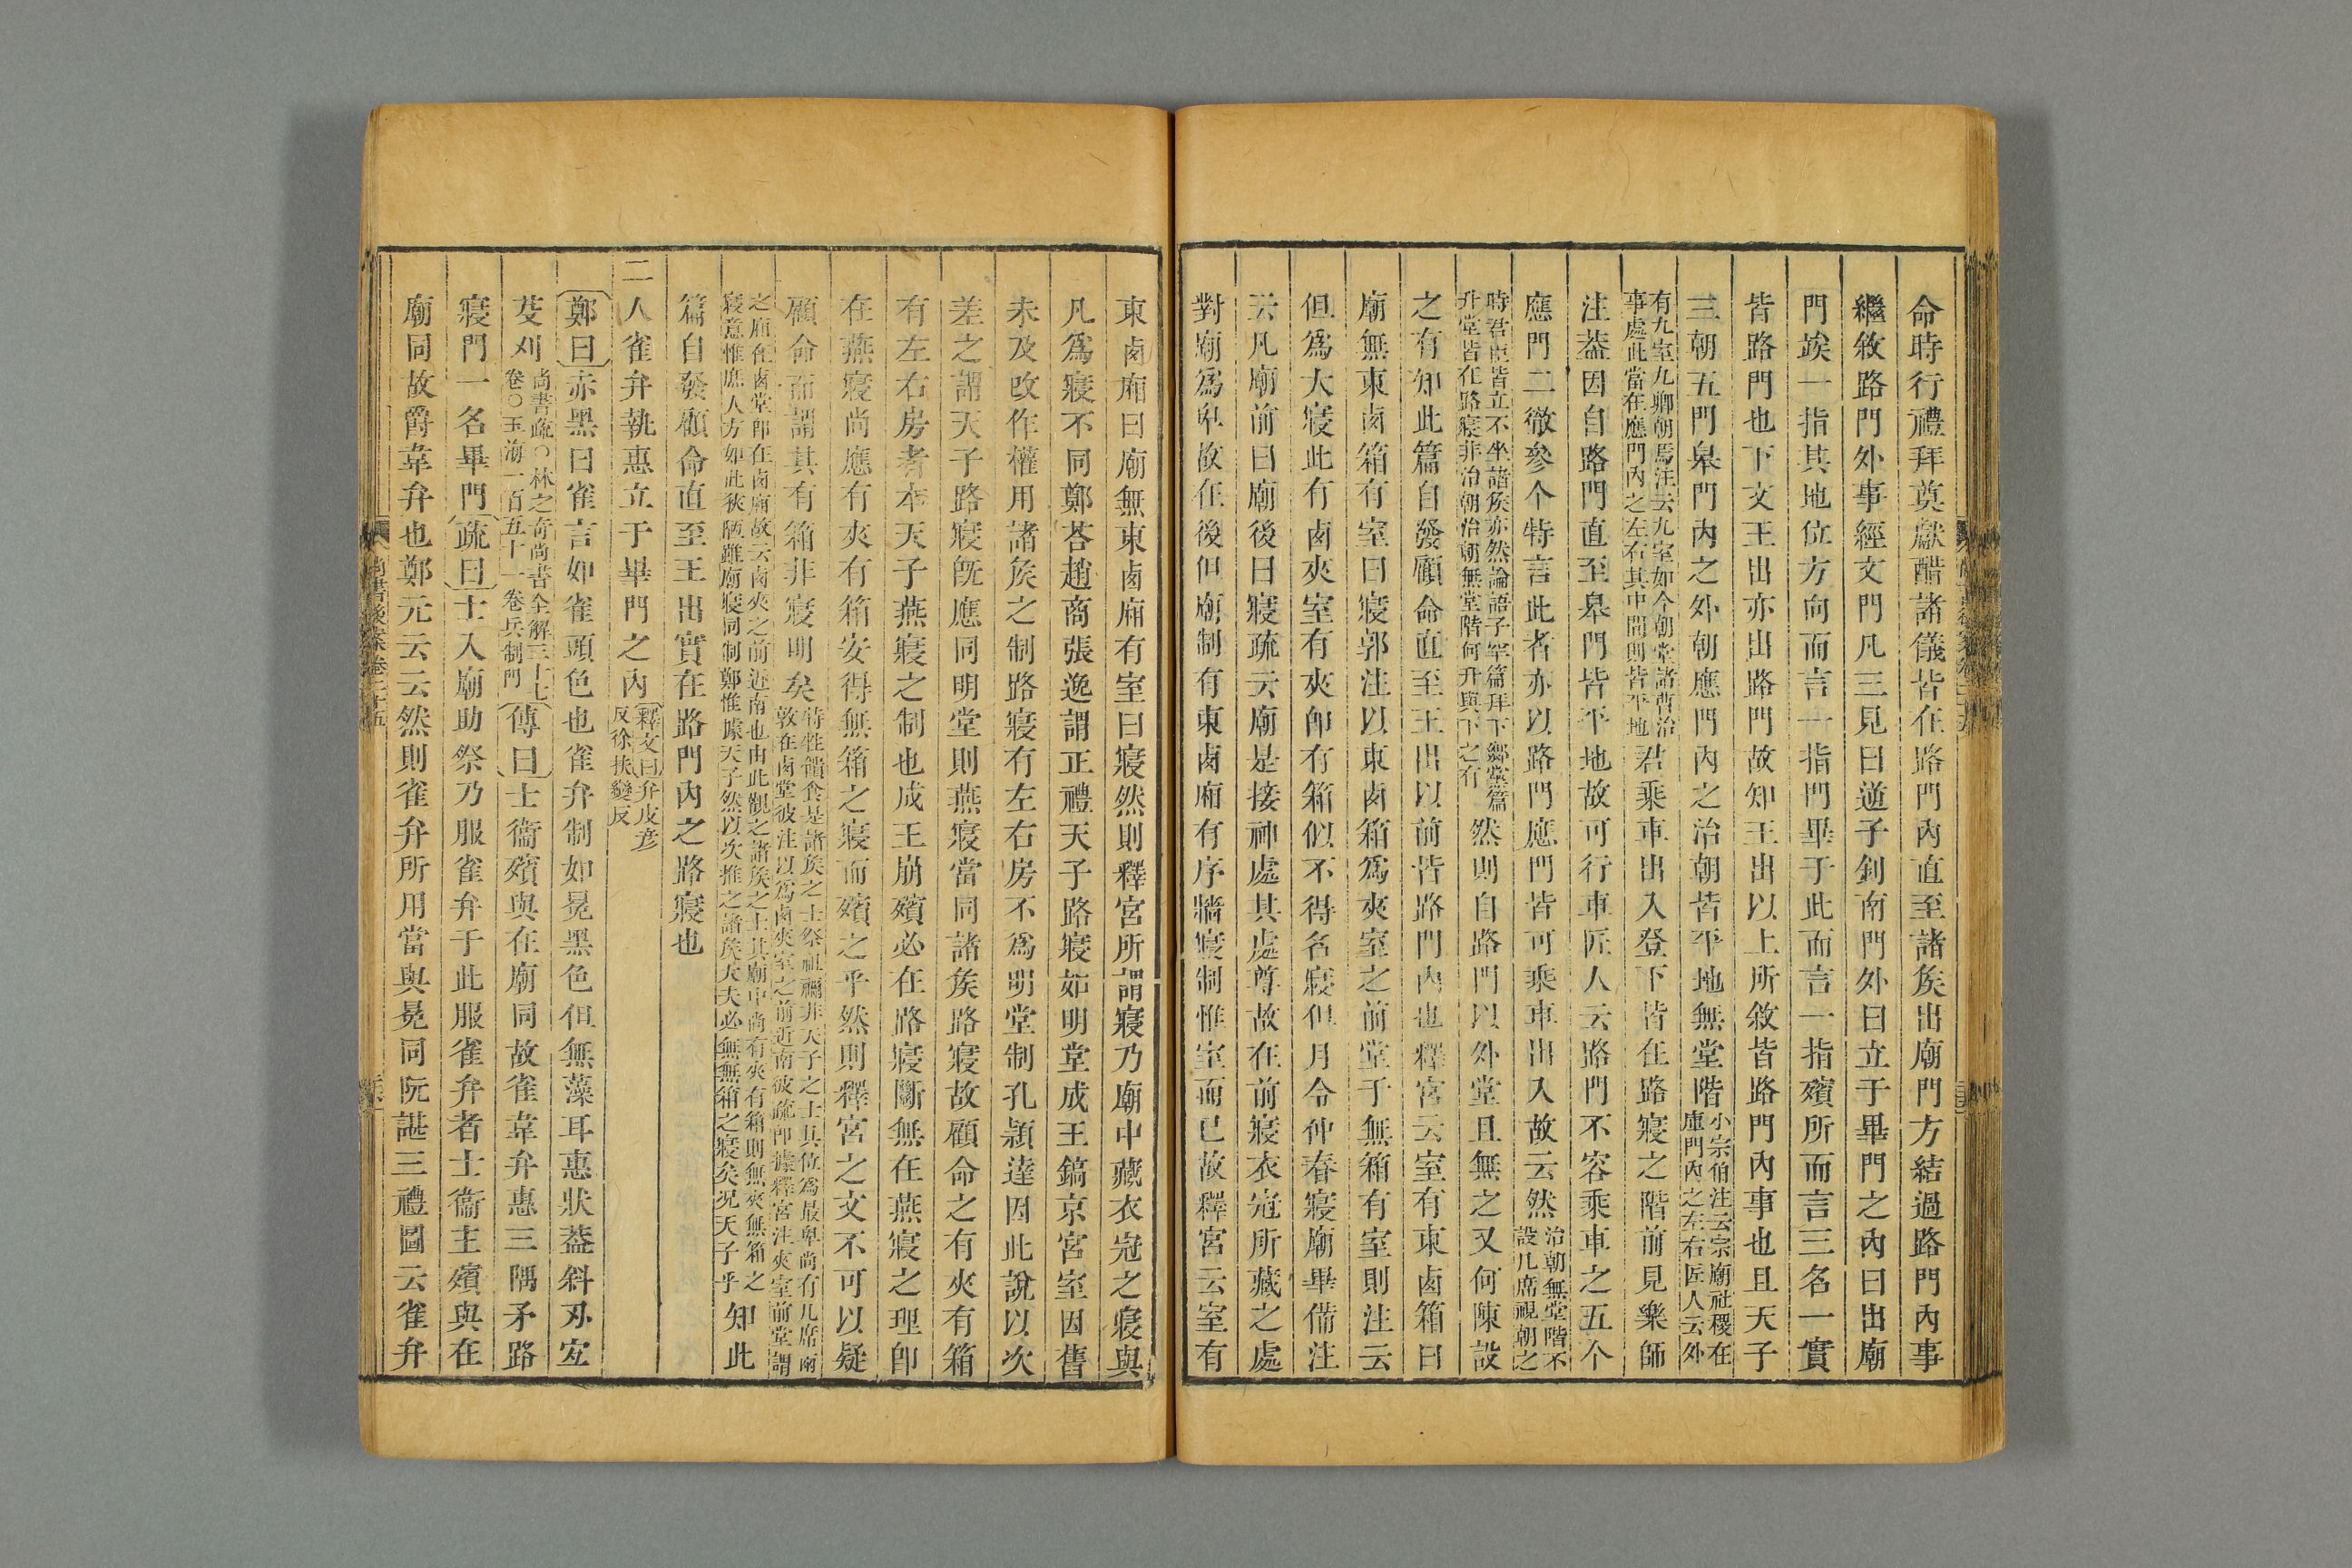 命時行禮拜奠獻醋諸儀皆在路門內直至諸矦出廟門方結過路門內事
繼敘路門外事經文門凡三見曰逆子釗南門外曰立于畢門之內曰出廟
門竢一指其地位方向而言一指門畢于此而言一指殯所而言三名一實
皆路門也下文王出亦出路門故知王出以上所敘皆路門內事也且天子
三朝五門皋門內之外朝應門內之治朝皆平地無堂階小宗伯注云宗廟社稷在庫門內之左右匠人云外
有九室九卿朝焉注云九室如今朝堂諸曹治事處此當在應門內之左右其中閒則皆平地君乘車出入登下皆在路寢之階前見樂師
注葢因自路門直至皋門皆平地故可行車匠人云路門不容乘車之五个
應門二徹參个特言此者亦以路門應門皆可乘車出入故云然治朝無堂階不設几席視朝之
時君臣皆立不坐諸矦亦然論語子罕篇拜下鄉黨篇升堂皆在路寢非治朝治朝無堂階何升與下之有然則自路門以外堂且無之又何陳設
之有知此篇自發顧命直至王出以前皆路門內也釋宮云室有東㢴箱曰
廟無東㢴箱有室曰寢郭注以東㢴箱爲夾室之前堂于無箱有室則注云
但爲大寢此有㢴夾室有夾卽有箱似不得名寢但月令仲春寢廟畢備注
云凡廟前曰廟後曰寢疏云廟是接神處其處尊故在前寢衣冠所藏之處
對廟爲卑故在後但廟制有東㢴廂有序牆寢制惟室而已故釋宮云室有
東㢴廂曰廟無東㢴廂有室曰寢然則釋宮所謂寢乃廟中藏衣冠之寢與
凡爲寢不同鄭荅趙商張逸謂正禮天子路寢如明堂成王鎬京宮室因舊
未及改作權用諸矦之制路寢有左右房不爲明堂制孔穎達因此說以次
差之謂天子路寢旣應同明堂則燕寢當同諸矦路寢故顧命之有夾有箱
有左右房者本天子燕寢之制也成王崩殯必在路寢斷無在燕寢之理卽
在燕寢尚應有夾有箱安得無箱之寢而殯之乎然則釋宮之文不可以疑
顧命而謂其有箱非寢明矣特牲饋食是諸矦之士祭祖禰非天子之士其位爲最卑尚有几席兩敦在㢴堂彼注以爲㢴夾室之前近南彼疏卽據釋宮注夾室前堂謂
之廂在㢴堂卽在㢴廟故云㢴夾之前近南也由此觀之諸矦之士其廟中尚有夾有箱則無夾無箱之寢意惟庶人方如此狹陋雖廟寢同制鄭惟據天子然以次推之諸矦大夫必無無箱之寢矣况天子乎知此
篇自發顧命直至王出實在路門內之路寢也
二人雀弁執惠立于畢門之內釋文曰弁皮彥反徐扶變反
鄭曰赤黑曰雀言如雀頭色也雀弁制如冕黑色但無藻耳惠狀葢斜刃宐
芟刈尚書疏○林之奇尚書全解三十七卷○玉海一百五十一卷兵制門傳曰士衞殯與在廟同故雀韋弁惠三隅矛路
寢門一名畢門疏曰士入廟助祭乃服雀弁于此服雀弁者士衞主殯與在
廟同故爵韋弁也鄭元云云然則雀弁所用當與冕同阮諶三禮圖云雀弁
尚書後案卷二十五